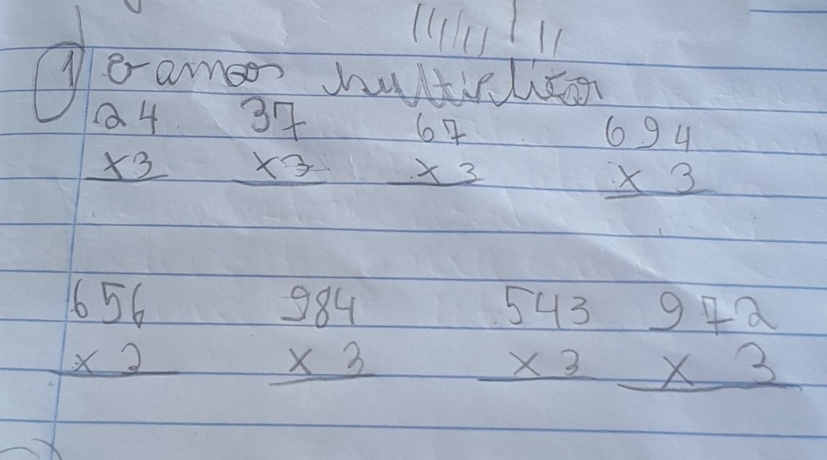 1) vamos multiplicar
24 37 67 694
x3 x3 x3 x 3
656 984 543 972
x 2 x 3 x 3 x 3